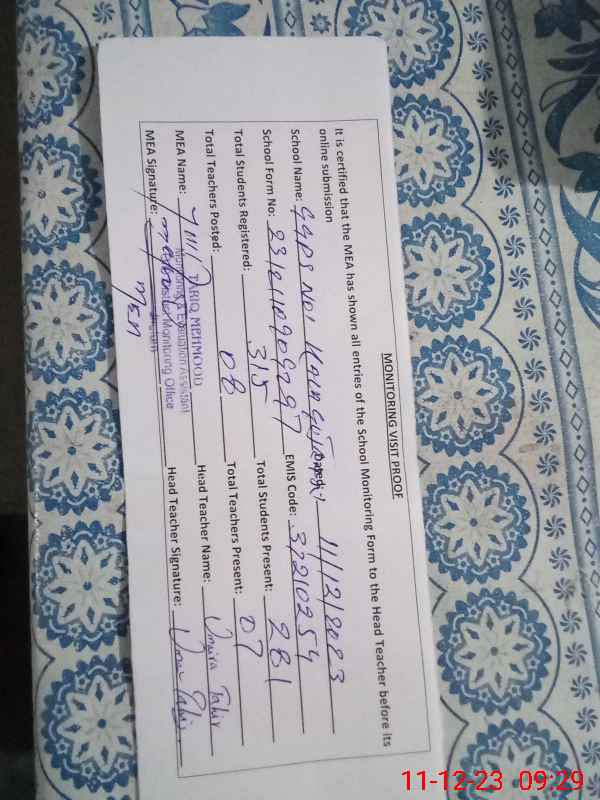 MONITORING VISIT PROOF
It is certified that the MEA has shown all entries of the School Monitoring Form to the Head Teacher before its
online submission
School Name: GGPS NO1 Date: 11/12/2023
School Form No: EMIS Code: 37210254
Total Students Registered: 315 Total Students Present: 281
Total Teachers Posted: 08 Total Teachers Present: 07
MEA Name: Head Teacher Name: Umaira Tahir
MEA Signature: Head Teacher Signature:
TARIQ MEHMOOD
Monitoring & Evaluation Assistant
Monitoring Office
MEA
11-12-23 09:29